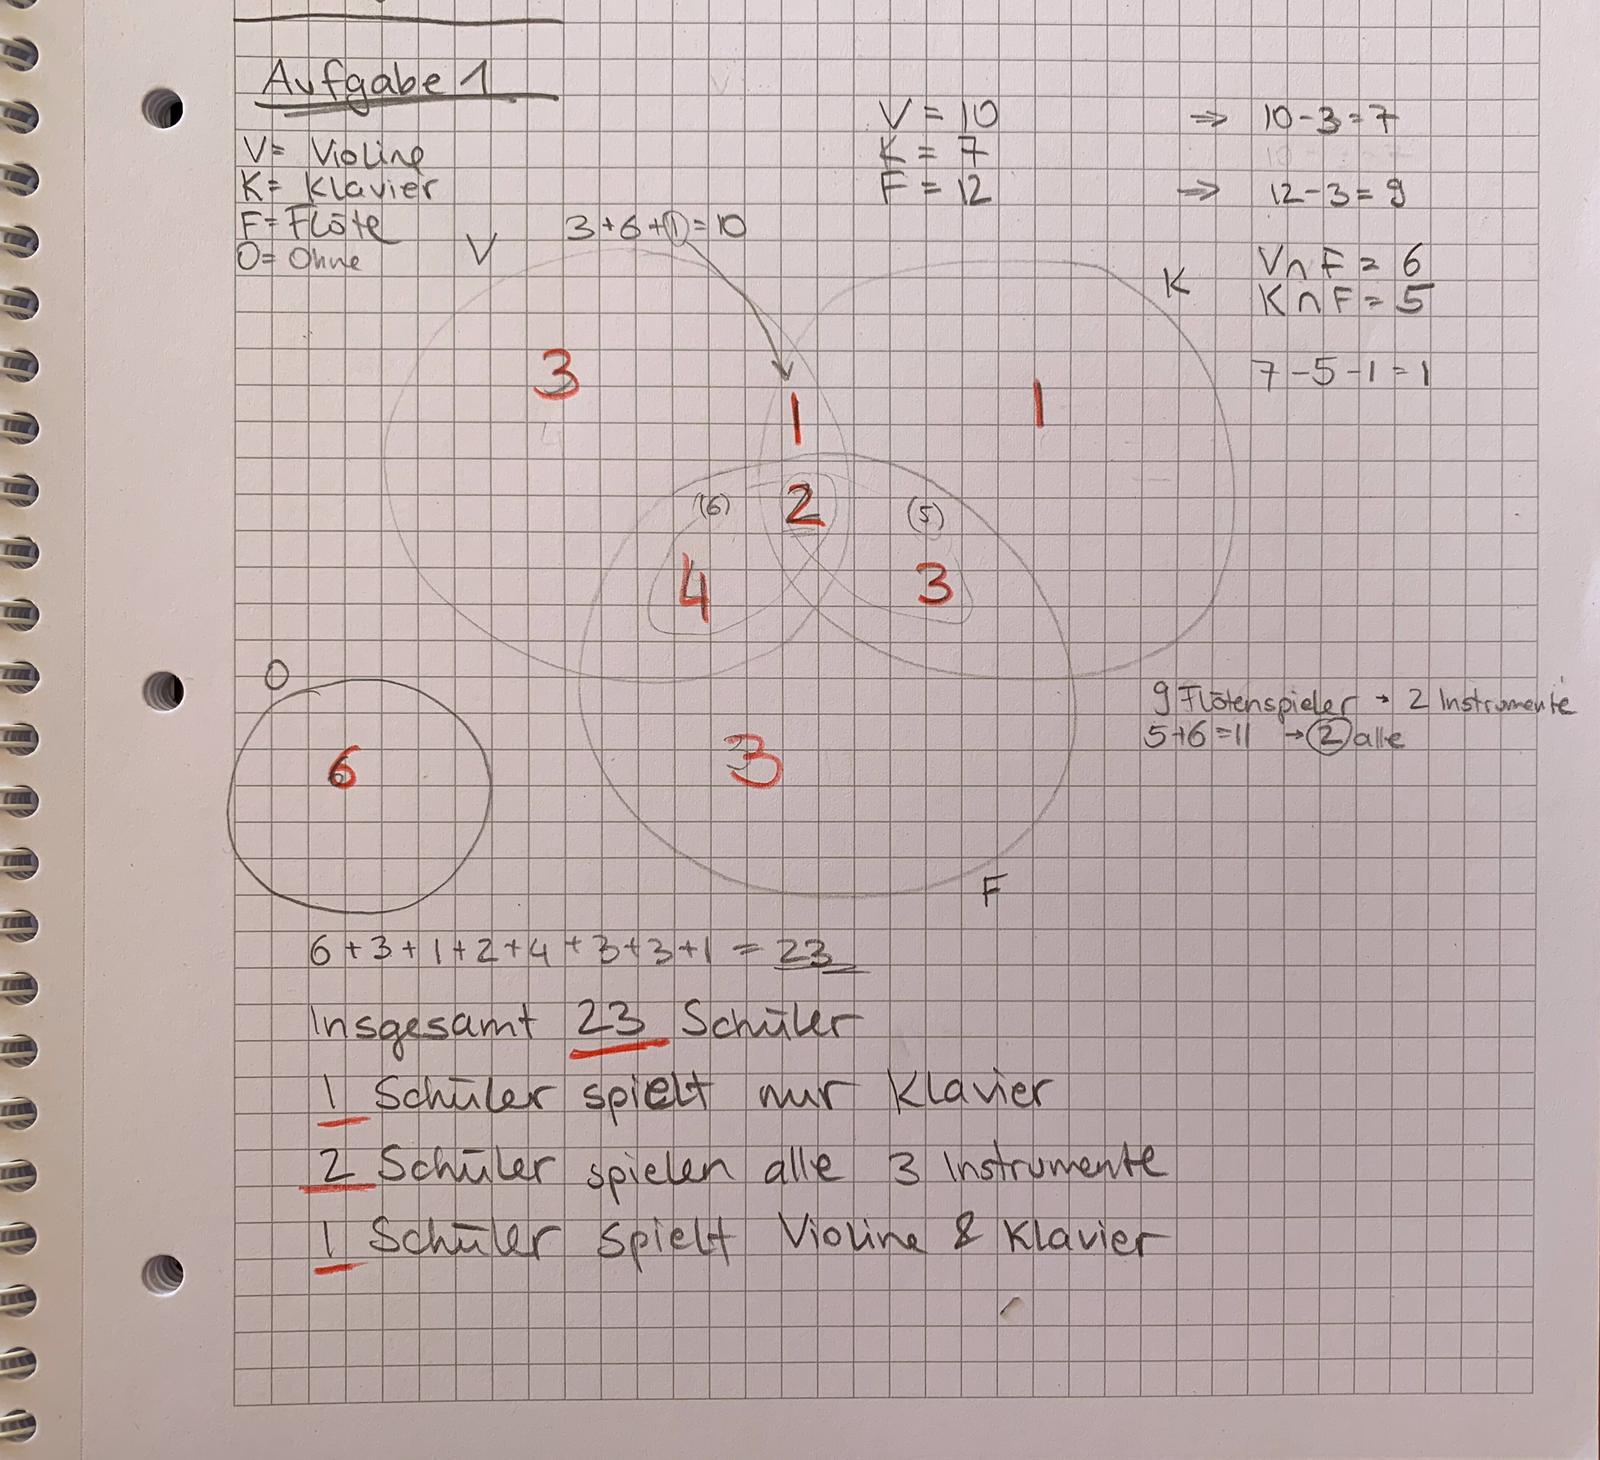 Aufgabe 1
V= Violine
K= Klavier
F= Flöte
O= Ohne
V = 10
K = 7
F = 12
⇒ 10-3=7
⇒ 12-3=9
V∩F = 6
K∩F = 5
7-5-1=1
3+6+1=10
V
K
3
1
1
(6)
2
(5)
4
3
O
6
3
9 Flötenspieler → 2 Instrumente
5+6=11 → 2 alle
F
6+3+1+2+4+3+3+1 = 23
Insgesamt 23 Schüler
1 Schüler spielt nur Klavier
2 Schüler spielen alle 3 Instrumente
1 Schüler spielt Violine & Klavier